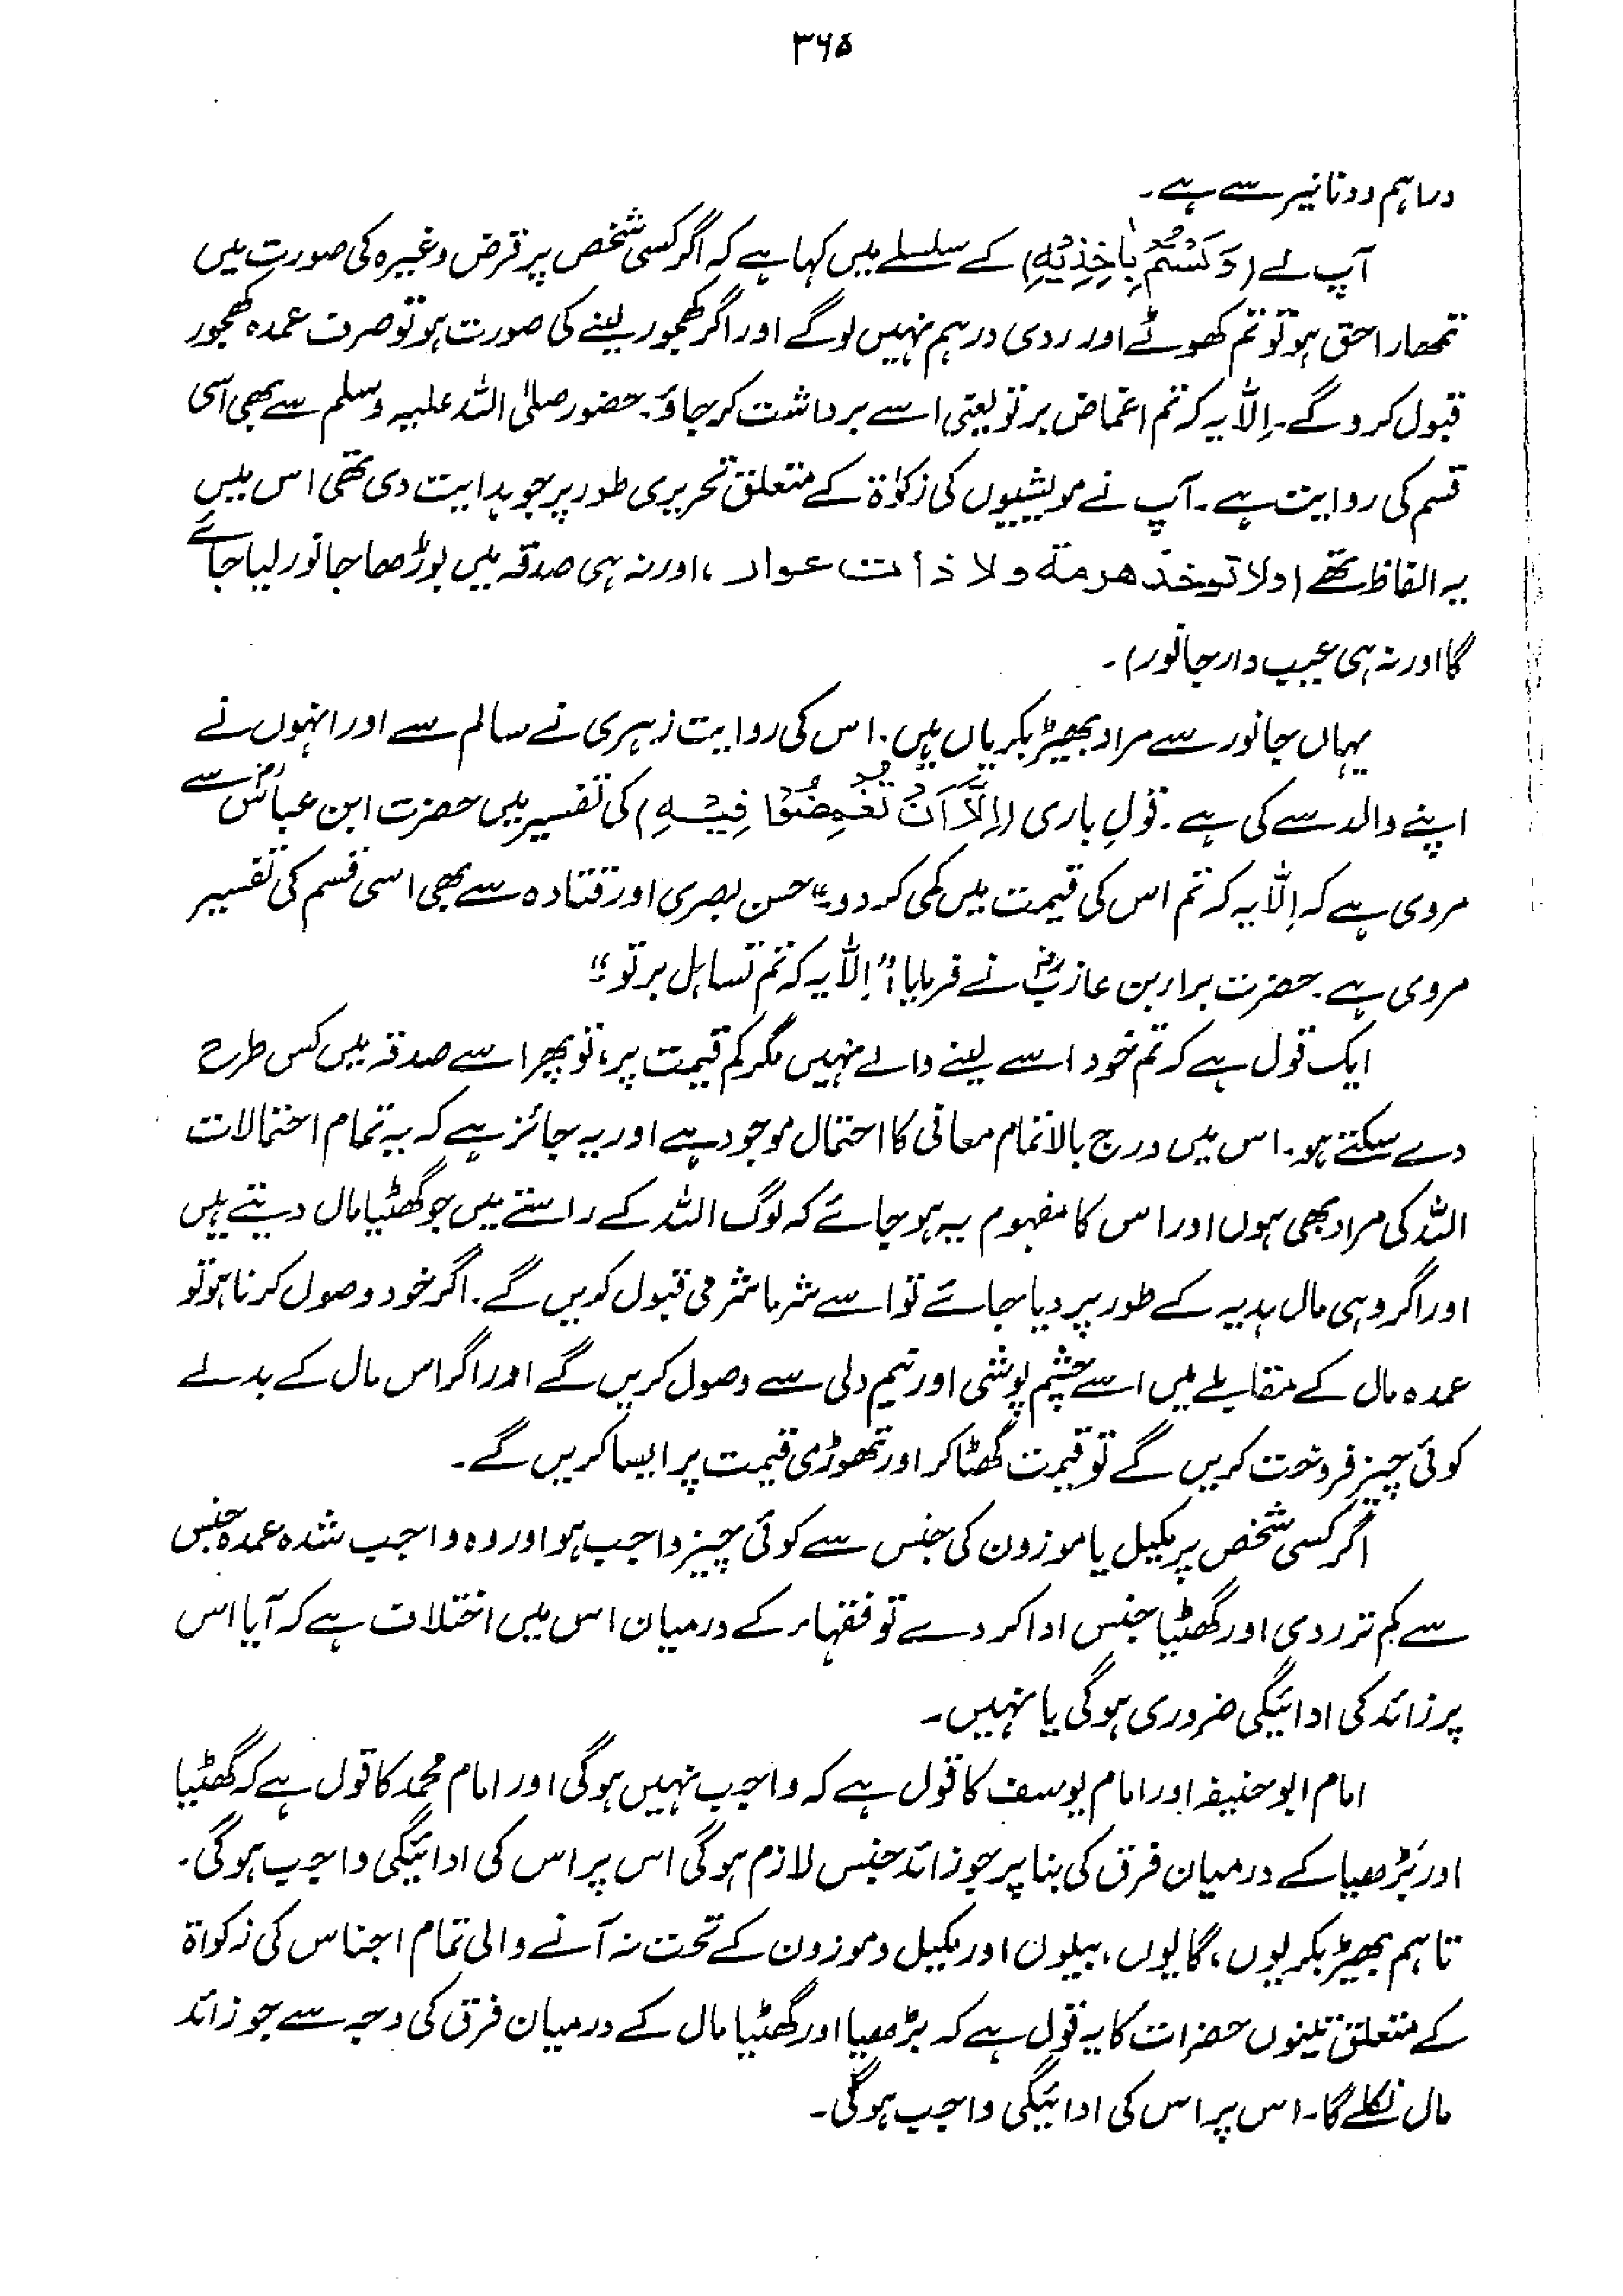 ۳۶۵
دراہم ودنانیر سے ہے۔
آپ نے (وَلَسْتُمْ بِاٰخِذِیْہِ) کے سلسلے میں کہا ہے کہ اگر کسی شخص پر قرض وغیرہ کی صورت میں
تمھارا حق ہو تو تم کھوٹے اور ردی درہم نہیں لو گے اور اگر کھجور لینے کی صورت ہو تو صرف عمدہ کھجور
قبول کرو گے۔ اِلّا یہ کہ تم اغماض برتو یعنی اسے برداشت کر جاؤ۔ حضور صلی اللہ علیہ وسلم سے بھی اسی
قسم کی روایت ہے۔ آپ نے مویشیوں کی زکوٰۃ کے متعلق تحریری طور پر جو ہدایت دی تھی اس میں
یہ الفاظ تھے (ولا توخذ ھرمۃ ولا ذات عوار، اور نہ ہی صدقہ میں بوڑھا جانور لیا جائے
گا اور نہ ہی عیب دار جانور)۔
یہاں جانور سے مراد بھیڑ بکریاں ہیں۔ اس کی روایت زہری نے سالم سے اور انہوں نے
اپنے والد سے کی ہے۔ قولِ باری (اِلَّا اَنْ تُغْمِضُوْا فِیْہِ) کی تفسیر میں حضرت ابن عباسؓ سے
مروی ہے کہ اِلّا یہ کہ تم اس کی قیمت میں کمی کر دو۔" حسن بصری اور قتادہ سے بھی اسی قسم کی تفسیر
مروی ہے۔ حضرت براء بن عازبؓ نے فرمایا: "اِلّا یہ کہ تم تساہل برتو۔"
ایک قول ہے کہ تم خود اسے لینے والے نہیں مگر کم قیمت پر، تو پھر اسے صدقہ میں کس طرح
دے سکتے ہو۔ اس میں درج بالا تمام معانی کا احتمال موجود ہے اور یہ جائز ہے کہ یہ تمام احتمالات
اللہ کی مراد بھی ہوں اور اس کا مفہوم یہ ہو جائے کہ لوگ اللہ کے راستے میں جو گھٹیا مال دیتے ہیں
اور اگر وہی مال ہدیہ کے طور پر دیا جائے تو اسے شرما شرمی قبول کریں گے۔ اگر خود وصول کرنا ہو تو
عمدہ مال کے مقابلے میں اسے چشم پوشی اور نیم دلی سے وصول کریں گے اور اگر اس مال کے بدلے
کوئی چیز فروخت کریں گے تو قیمت گھٹا کر اور تھوڑی قیمت پر ایسا کریں گے۔
اگر کسی شخص پر مکیل یا موزون کی جنس سے کوئی چیز واجب ہو اور وہ واجب شدہ عمدہ جنس
سے کم تر ردی اور گھٹیا جنس ادا کر دے تو فقہاء کے درمیان اس میں اختلاف ہے کہ آیا اس
پر زائد کی ادائیگی ضروری ہوگی یا نہیں۔
امام ابو حنیفہ اور امام یوسف کا قول ہے کہ واجب نہیں ہوگی اور امام محمد کا قول ہے کہ گھٹیا
اور بڑھیا کے درمیان فرق کی بنا پر جو زائد جنس لازم ہوگی اس پر اس کی ادائیگی واجب ہوگی۔
تاہم بھیڑ بکریوں، گایوں، بیلوں اور مکیل وموزون کے تحت نہ آنے والی تمام اجناس کی زکوٰۃ
کے متعلق تینوں حضرات کا یہ قول ہے کہ بڑھیا اور گھٹیا مال کے درمیان فرق کی وجہ سے جو زائد
مال نکلے گا۔ اس پر اس کی ادائیگی واجب ہوگی۔